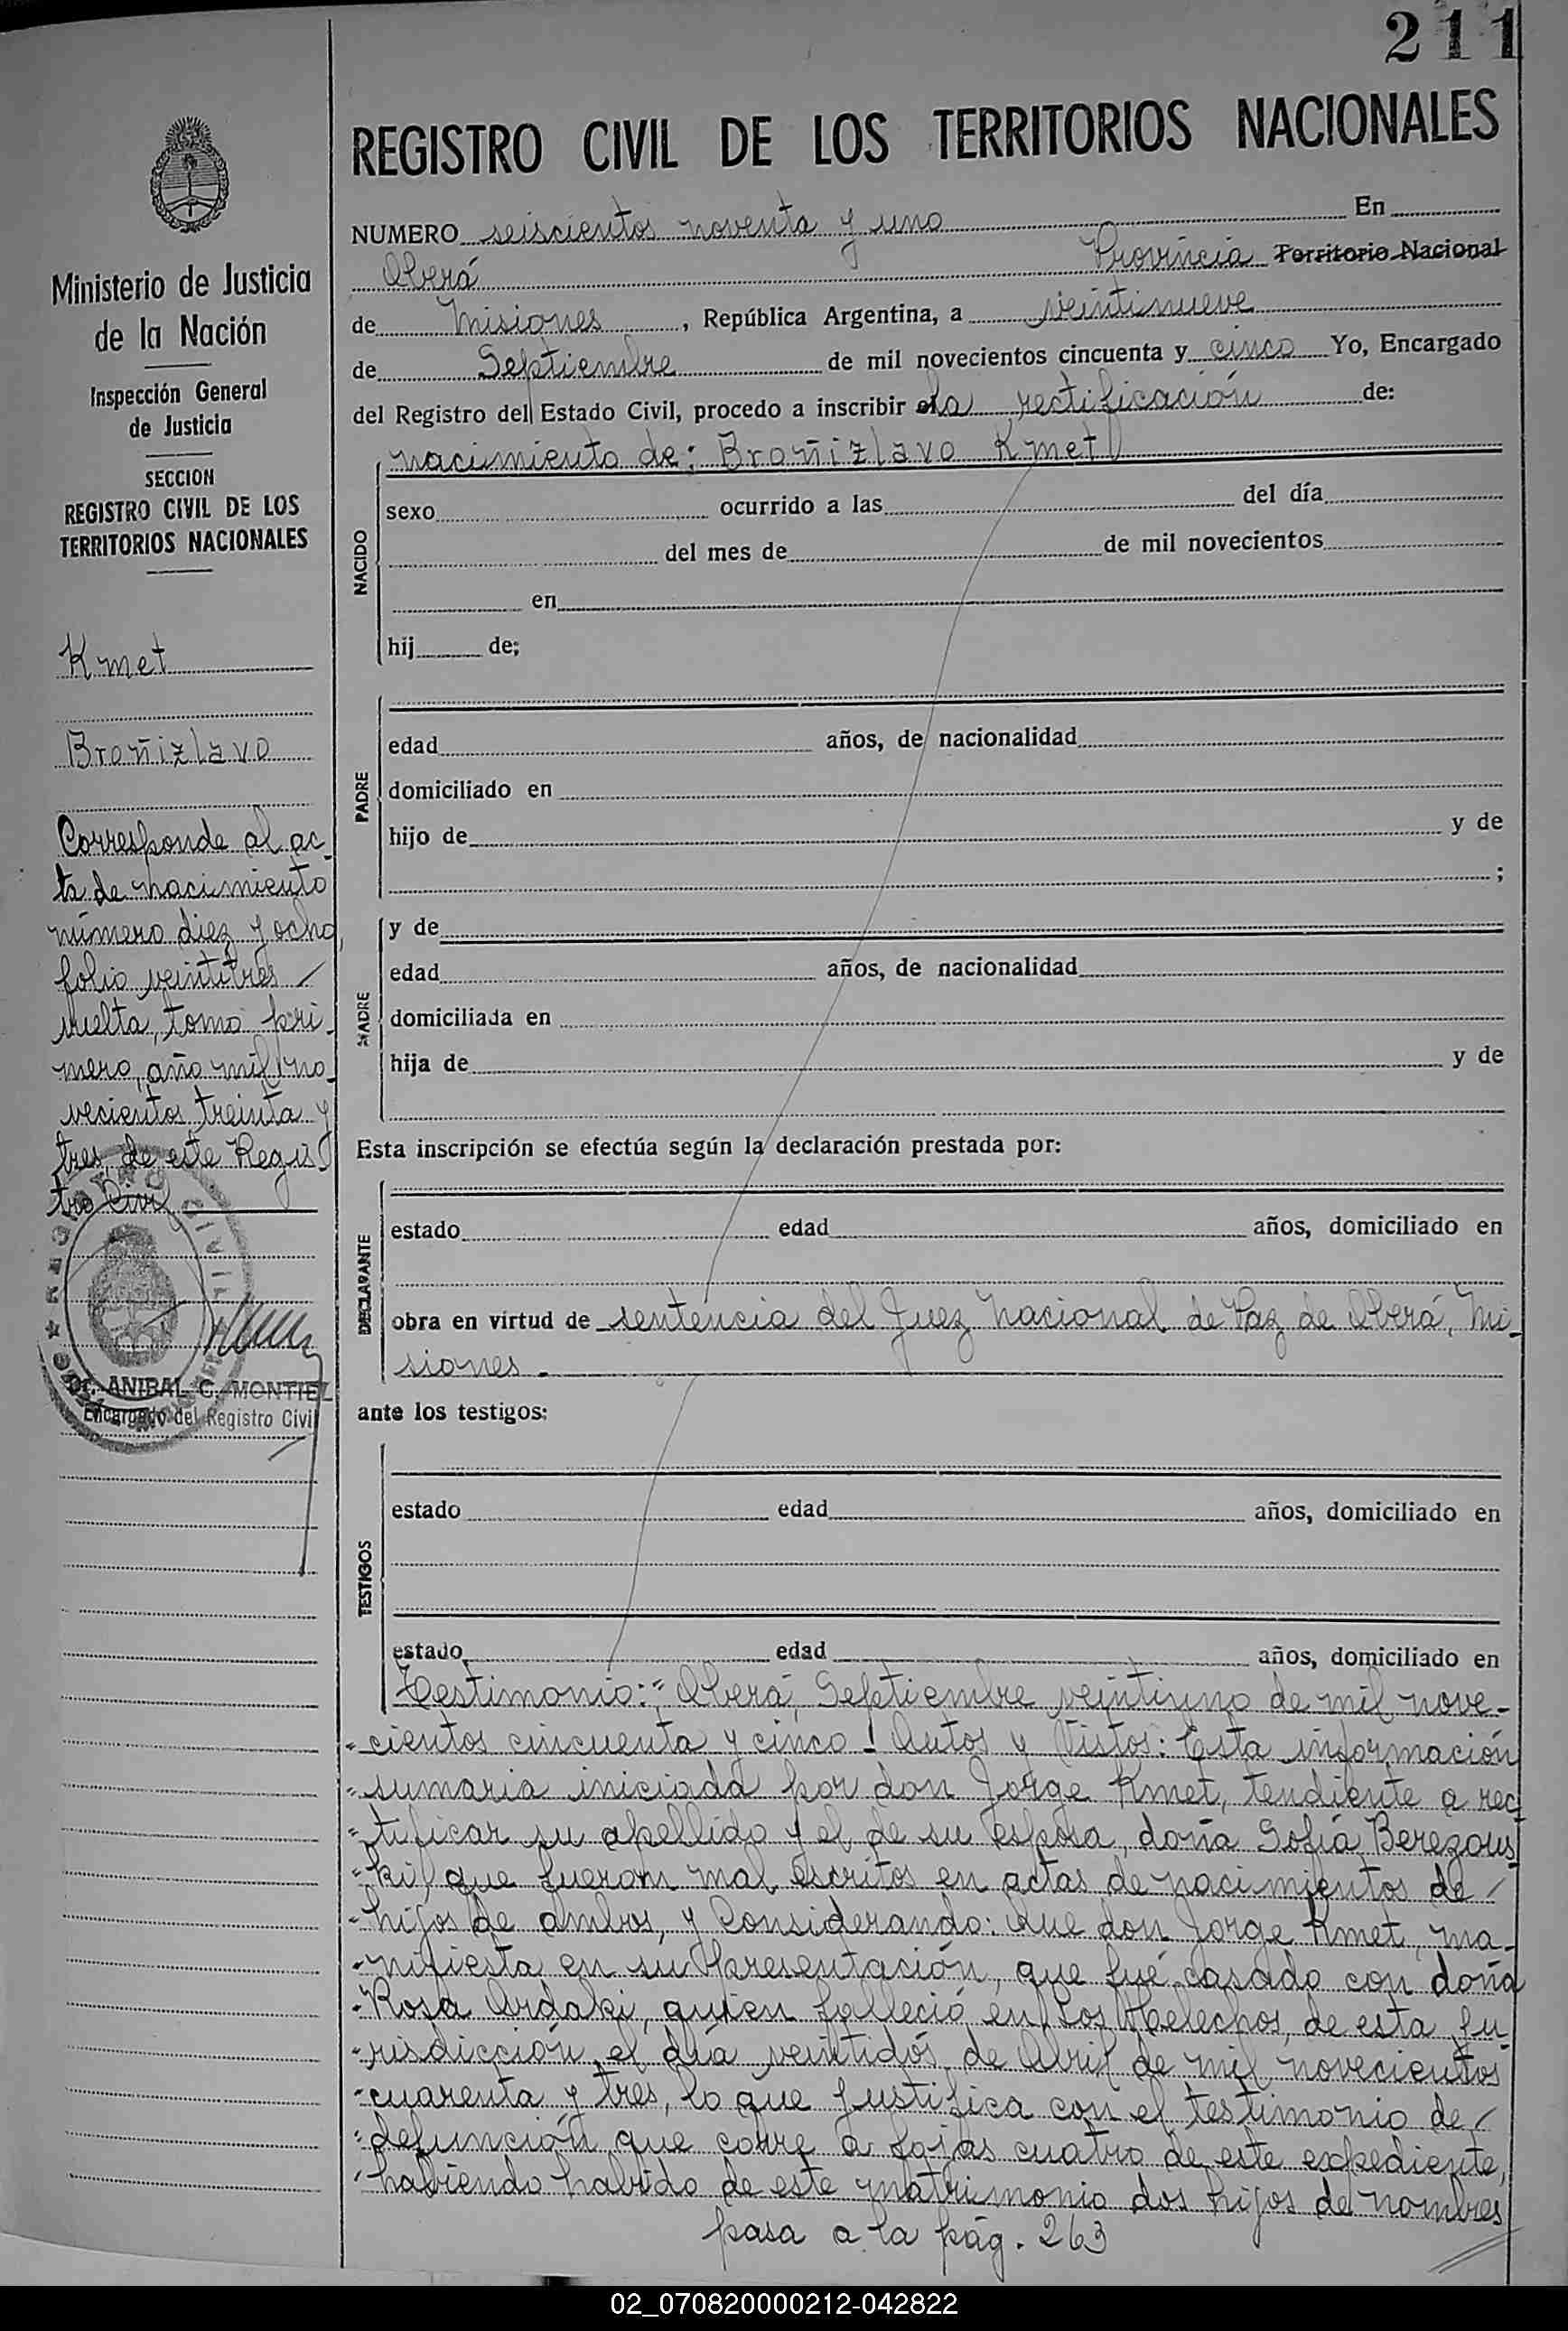 211
REGISTRO CIVIL DE LOS TERRITORIOS NACIONALES
Ministerio de Justicia
de la Nación
Inspección General
de Justicia
SECCION
REGISTRO CIVIL DE LOS
TERRITORIOS NACIONALES
Kmet
Broñizlavo
Corresponde al ac-
ta de nacimiento
número diez y ocho,
folio veintitres
vuelta, tomo pri-
mero, año mil no-
vecientos treinta y
tres, de este Regis-
tro Civil
REGISTRO CIVIL
Dr. ANIBAL C. MONTIEL
Encargado del Registro Civil
NUMERO seiscientos noventa y uno En
Oberá Provincia Territorio Nacional
de Misiones, República Argentina, a veintinueve
de Septiembre de mil novecientos cincuenta y cinco Yo, Encargado
del Registro del Estado Civil, procedo a inscribir la rectificación de:
nacimiento de: Broñizlavo Kmet
NACIDO
sexo ocurrido a las del día
del mes de de mil novecientos
en
hij de;
PADRE
edad años, de nacionalidad
domiciliado en
hijo de y de
;
MADRE
y de
edad años, de nacionalidad
domiciliada en
hija de y de
Esta inscripción se efectúa según la declaración prestada por:
DECLARANTE
estado edad años, domiciliado en
obra en virtud de sentencia del Juez Nacional de Paz de Oberá, Mi-
siones.-
ante los testigos:
TESTIGOS
estado edad años, domiciliado en
estado edad años, domiciliado en
Testimonio: "Oberá, Septiembre veintiuno de mil nove-
"cientos cincuenta y cinco! Autos y Vistos: Esta información
"sumaria iniciada por don Jorge Kmet, tendiente a rec-
"tificar su apellido y el de su esposa, doña Sofía Berezous-
"ki, que fueron mal escritos en actas de nacimientos de
"hijos de ambos, y Considerando: Que don Jorge Kmet, ma-
"nifiesta en su presentación, que fué casado con doña
"Rosa Ardaki, quien falleció en Los Helechos, de esta Ju-
"risdicción, el día veintidós de Abril de mil novecientos
"cuarenta y tres, lo que justifica con el testimonio de
"defunción que corre a fojas cuatro de este expediente,
"habiendo habido de este matrimonio dos hijos de nombres
pasa a la pág. 263
02_070820000212-042822